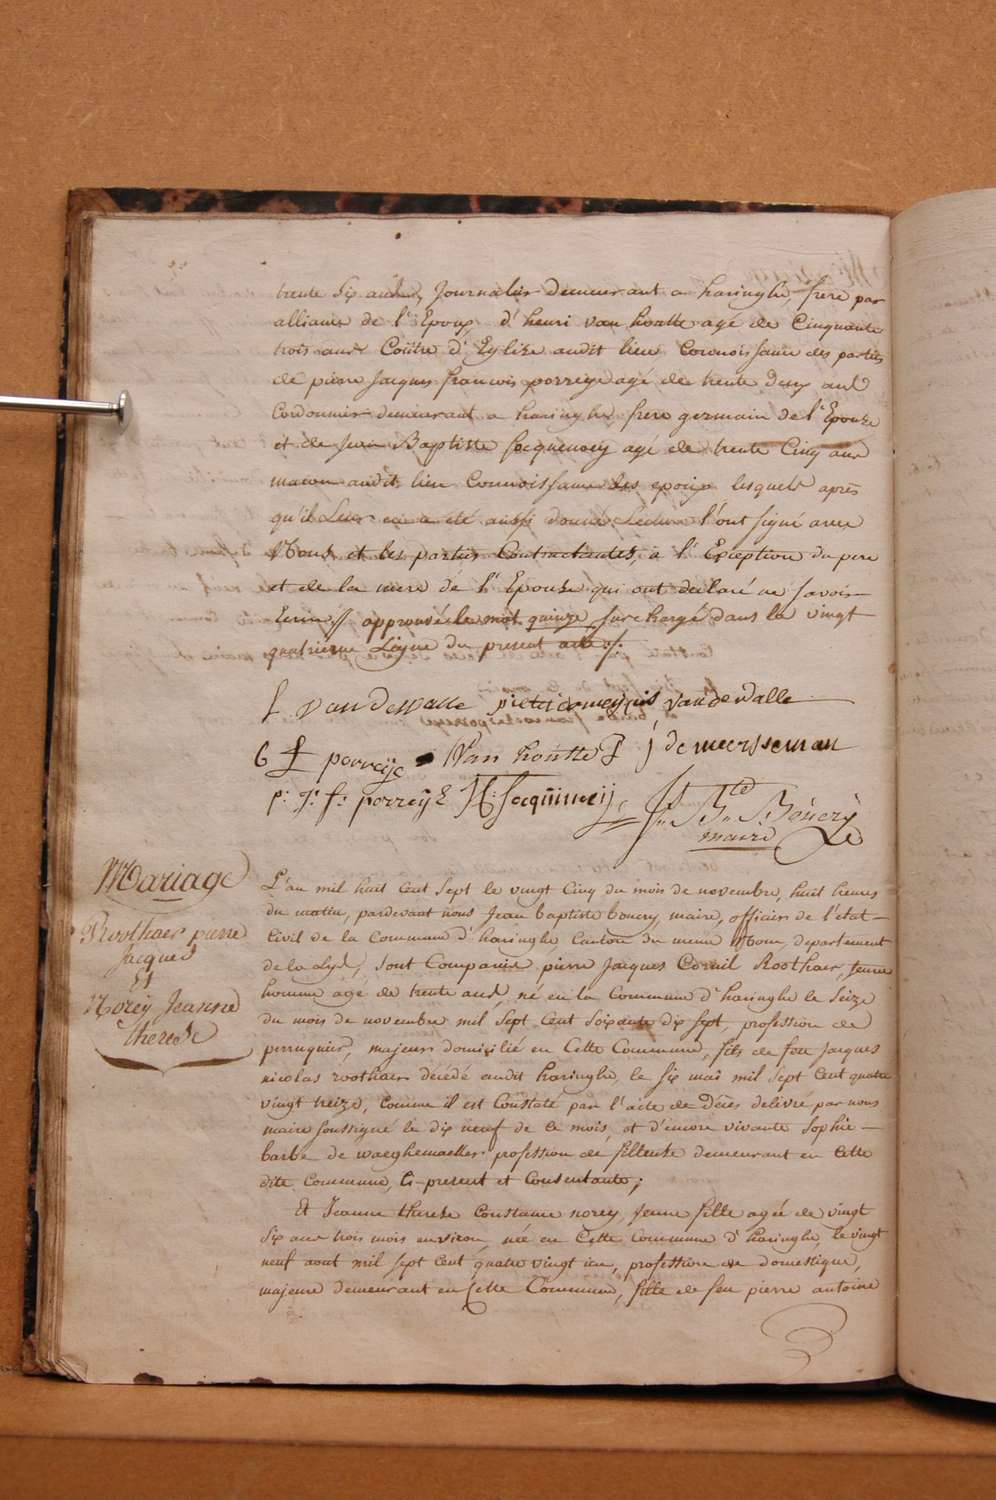 trente six ans, Journalier demeurant a haringhe, frere par
alliance de l'Epoux, d'henri van houtte agé de Cinquante
trois ans Coûtre d'Eglize audit lieu Connoissance des parties
de pierre Jacques francois porreye agé de trente deux ans
Cordonnier demeurant a haringhe frere germain de l'Epouse
et de Jean Baptiste Jacquemoey agé de trente Cinq ans
macon audit lieu Connoissance des epoux lesquels après
qu'il Leur en a été aussi donné Lecture l'ont signé avec
Nous et les parties Contractantes, a l'Exception du pere
et de la mere de l'Epouse qui ont declaré ne savoir
Ecrire // approuvé le mot quinze surchargé dans la vingt
quatrieme Ligne du present acte :/.
f vandewalle pieter vandewalle
porreije Van houtte j de meersseman
p: J: f: porreÿe Bouery
maire
Mariage
Roothaer pierre
Jacques
Et
Norey Jeanne
therese
L'an mil huit cent sept le vingt Cinq du mois de novembre, huit heures
du matin, pardevant nous Jean baptiste bouery, maire, officier de l'etat
Civil de la Commune d'haringhe, Canton du meme Nom, departement
de la Lys, sont Comparus pierre Jacques Corneil Roothaer, jeune
homme agé de trente ans, né en la Commune d'haringhe le seize
du mois de novembre mil sept cent soixante dix sept, profession de
perruquier, majeur domicilié en Cette Commune, fils de feu Jacques
nicolas roothaer décédé audit haringhe, le six mai mil sept cent quatre
vingt treize, comme il est Constaté par l'acte de Décès delivré par nous
maire soussigné le dix neuf de ce mois, et d'encore vivante Sophie
barbe de waeghemacker profession de fileuse demeurant en Cette
dite Commune, Ci-present et Consentante;
Et Jeanne therese Constance norey, jeune fille agée de vingt
six ans trois mois environ, née en Cette Commune d'haringhe, le vingt
neuf aout mil sept cent quatre vingt un, profession de domestique,
majeure demeurant en Cette Commune, fille de feu pierre antoine